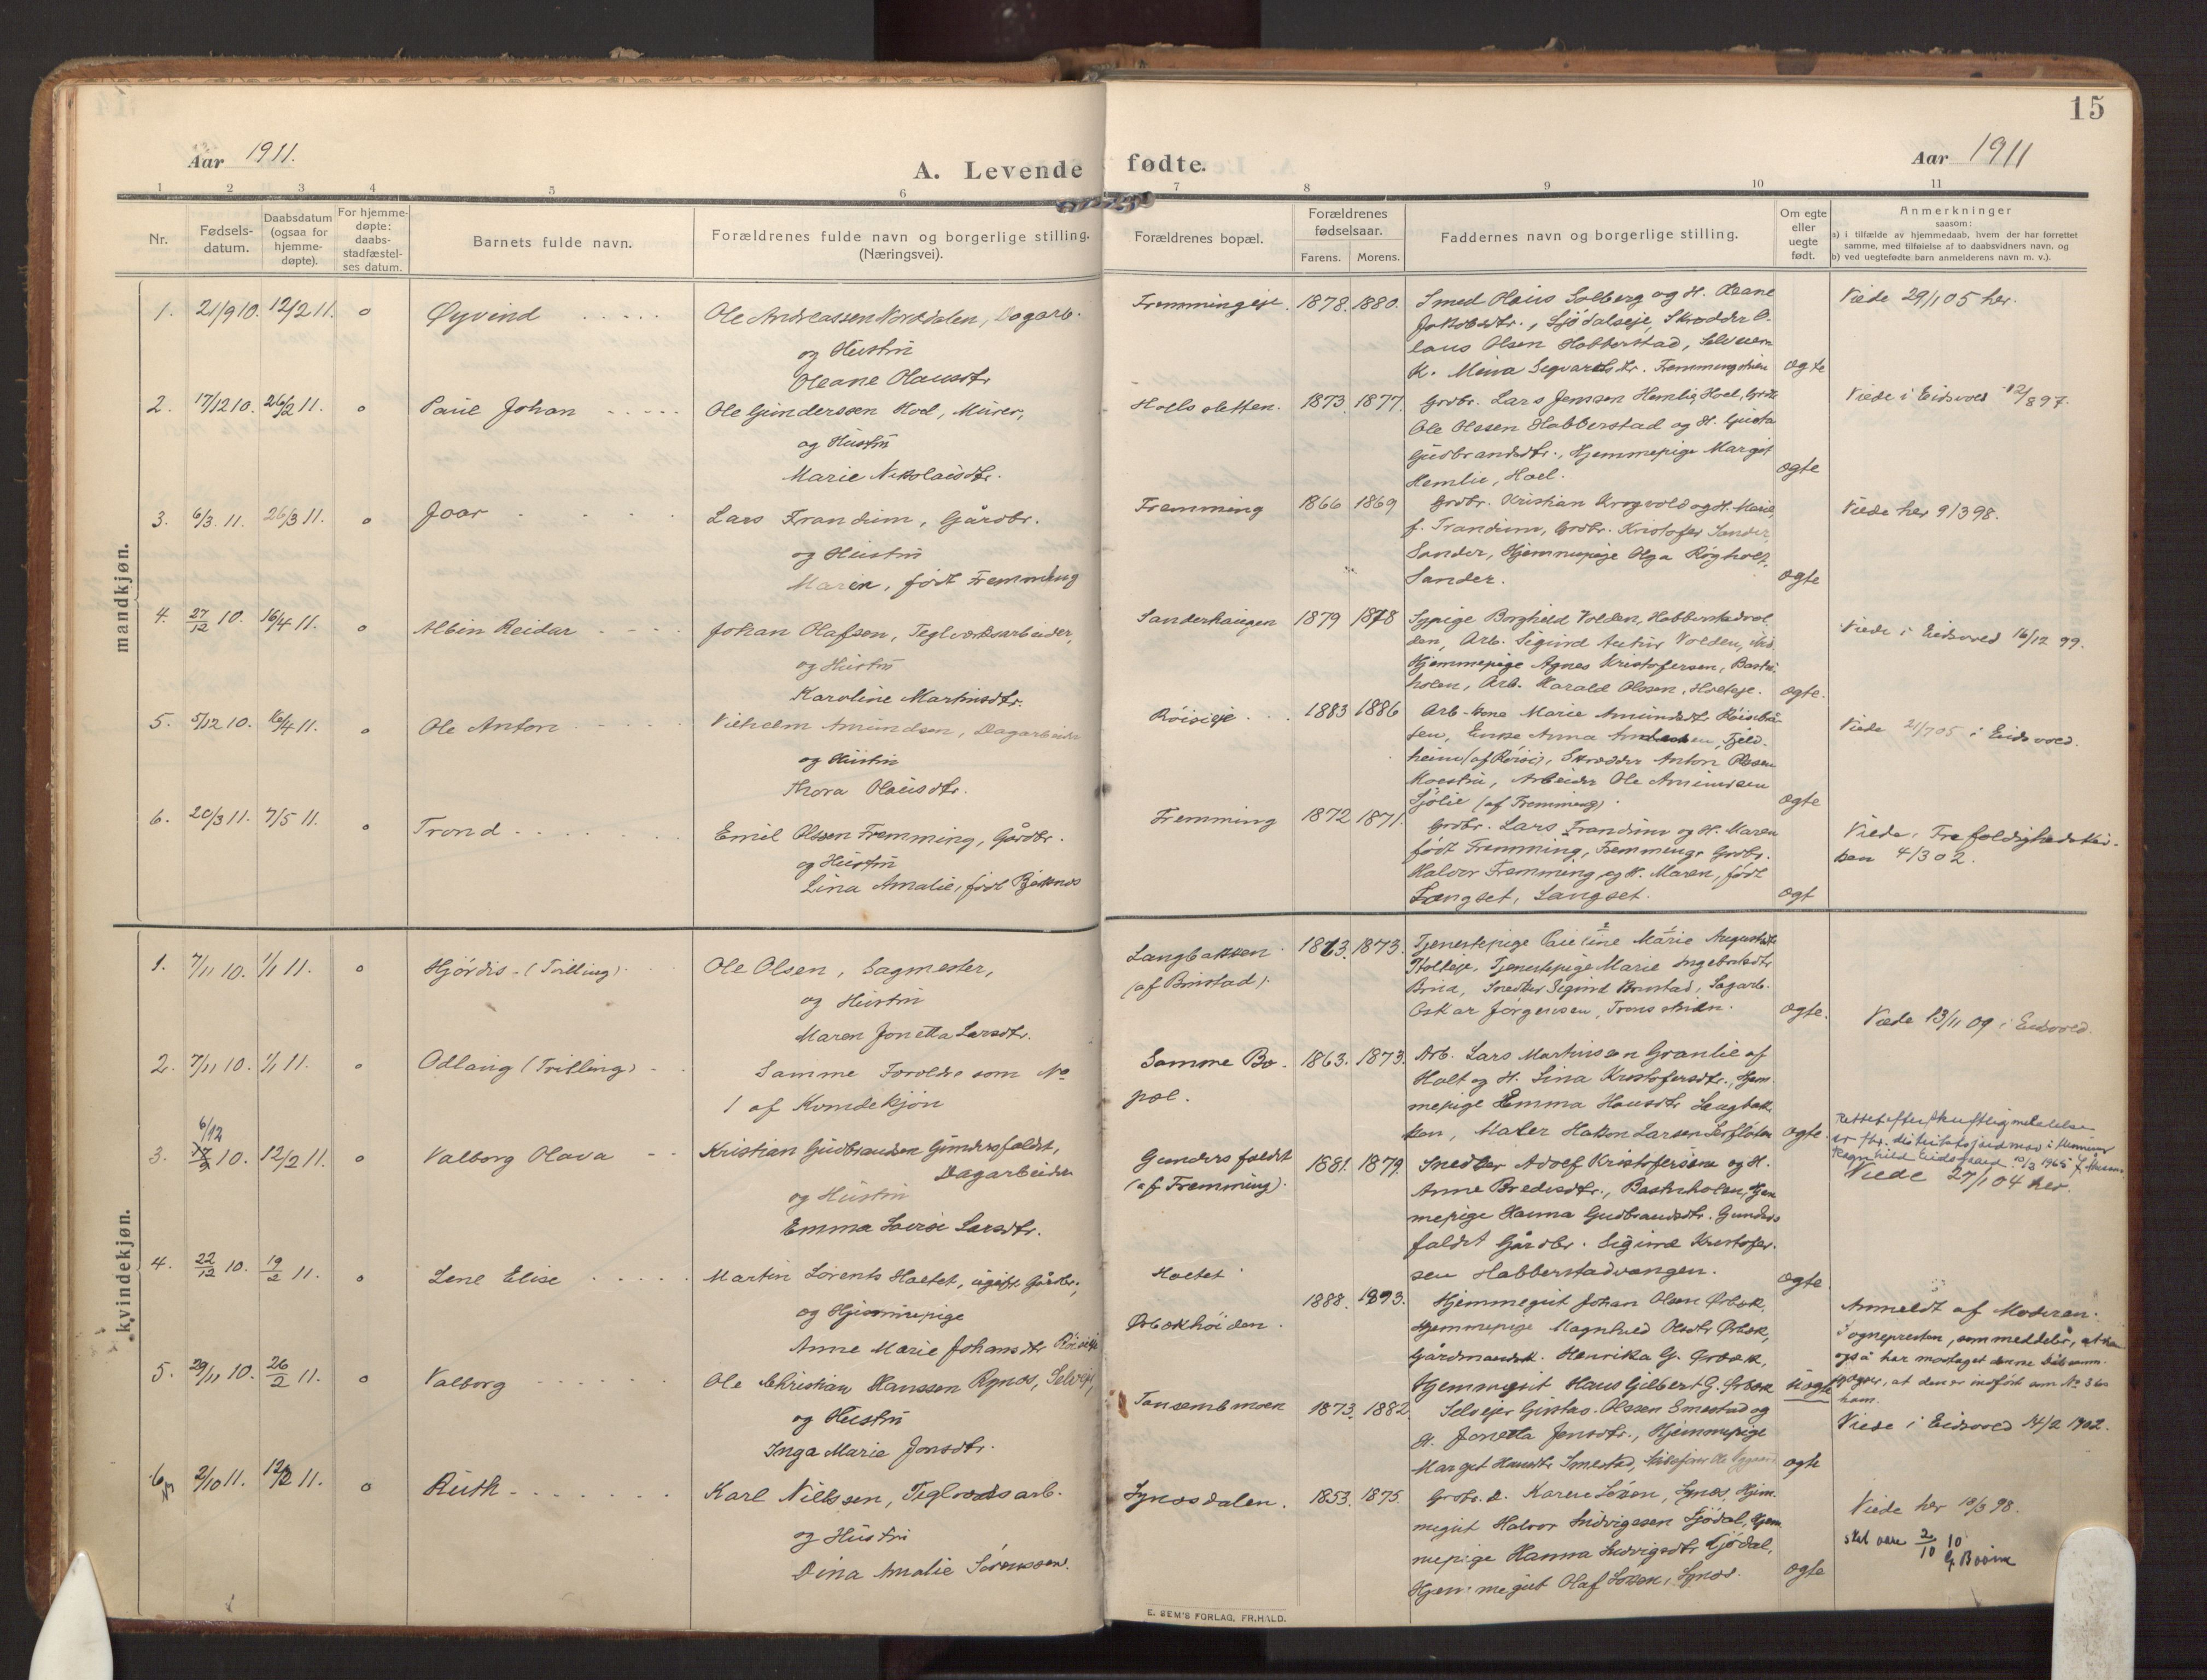 15
Aar 1911.
A. Levende fødte.
Aar 1911
1 2 3 4 5 6 7 8 9 10 11
Nr.
Fødsels-
datum.
Daabsdatum
(ogsaa for
hjemme-
døpte).
For hjemme-
døpte:
daabs-
stadfæstel-
ses datum.
Barnets fulde navn.
Forældrenes fulde navn og borgerlige stilling.
(Næringsvei).
Forældrenes bopæl.
Forældrenes
fødselsaar.
Farens. Morens.
Faddernes navn og borgerlige stilling.
Om egte
eller
uegte
født.
Anmerkninger
saasom:
a) i tilfælde av hjemmedaab, hvem der har forrettet
samme, med tilføielse af to daabsvidners navn, og
b) ved uegtefødte barn anmelderens navn m. v.).
mandkjøn.
1. 21/9 10. 12/2 11. o Øyvind
Ole Andreassen Norddalen, Dagarb.
og Hustru
Oleane Olausdtr
Fremmingeje. 1878. 1880.
Smed Olaus Solberg og H. Oleane
Jakobsdtr., Sjödalseje, Skrædder O-
laus Olsen Habberstad,
K. Mina Sigvartsdtr.
ægte
Viede 29/1 05 her.
2. 17/12 10. 26/2 11. o Paul Johan
Ole Gundersen Hoel, Murer,
og Hustru
Marie Nikolaisdtr.
Hoelssletten. 1873. 1877.
Grdbr. Lars Jensen Hemli, Hoel, Grdb.
Ole Olssen Habberstad og H. Gusta
Gudbrandsdtr., Hjemmepige Margit
Hemlie, Hoel.
ægte
Viede i Eidsvold 12/8 97.
3. 6/3. 11. 26/3 11. o Joar
Lars Trandum, Gårdbr.
og Hustru
Maren, født Fremming
Fremming 1866 1869
Grdbr. Kristian Krogvold og H. Marie
f. Trandum, Grdbr. Kristofer Sander,
Sander, Hjemmepige Olga Røgholt,
Sander.
ægte
Viede her 9/3 98.
4. 27/12 10. 16/4 11. o Albin Reidar
Johan Olafsen, Teglverksarbeider,
og Hustru
Karoline Martinsdtr.
Sanderhaugen 1879 1878
Sypige Borghild Volden, Habberstadvol-
den, Arb. Sigurd Artur Volden,
Hjemmepige Agnes Kristofersen, Bastu-
holen, Arb. Harald Olssen, Holteje.
ægte.
Viede i Eidsvold 16/12 99.
5. 5/12 10. 16/4 11. o Ole Anton
Vilhelm Amundsen, Dagarbeider
og Hustru
Thora Olausdtr.
Röisieje 1883 1886
Arb.-kone Marie Amundsdtr
sen, Enke Anna Fjeld-
heim (af Röisi), Skrædder Anton Olssen
Moestu, Arbeider Ole Amundsen
Sjölie (af Fremming).
ægte
Viede 21/7 05 i Eidsvold.
6. 20/3 11. 7/5 11. o Trond
Emil Olssen Fremming, Gårdbr.
og Hustru
Lina Amalie, født Bjerknes
Fremming 1872 1871.
Grdbr. Lars Trandum og H. Maren
født Fremming, Fremming, Grdbr.
Halvor Fremming, og H. Maren, født
Langset, Langset.
ægt
Viede i Trefoldighedskir-
ken 4/3 02.
kvindekjøn.
1. 7/11 10. 1/1 11. o Hjördis - (Tvilling)
Ole Olsen, Sagmester,
og Hustru
Maren Jonetta Larsdtr.
Langbakken
(af Brustad). 1863. 1873.
Tjenestepige Pauline Marie Augustsdtr
Holteje, Tjenestepige Marie Ingebretsdtr
Snedker Sigurd Brustad, Sagarb.
Oskar Jörgensen,
ægte.
Viede 13/11 09 i Eidsvold.
2. 7/11 10. 1/1 11. o Odlaug (Tvilling)
Samme Forældre som No
1 af Kvindekjön
Samme Bo-
pæl. 1863. 1873.
Arb. Lars Martinssen Granlie af
Holt og H. Lina Kristofersdtr., Hjem-
mepige Emma Hansdtr Langbak-
ken, Maler Hakon Larsen
ægte.
3. 6/12 10. 12/2 11. o Valborg Olava
Kristian Gudbrandsen Gundersfaldet,
Dagarbeider
og Hustru
Emma Lovise Larsdtr.
Gundersfaldet
(af Fremming). 1881. 1879.
Snedker Adolf Kristofersen og H.
Anne Bredesdtr., Bastuholen, Hjem-
mepige Hanna Gudbrandsdtr. Gunders-
faldet Gårdbr. Sigurd Kristofer-
sen Habberstadvangen.
ægte.
Rettet efter skriftlig meddelelse
er fhr. distriktsjordmor i Minnesund
Ragnhild Eidsgaard. 10/3 1965
Viede 27/1 04 her.
4. 22/12 10. 19/2 11. o Lene Elise
Martin Lorents Holtet, ugift Gårdbr.,
og Hjemmepige
Anne Marie Johansdtr Röisieje
Holtet
Ørbækhöiden. 1888. 1893.
Hjemmegut Johan Olsen Ørbæk,
Hjemmepige Magnhild Olsdtr Ørbæk,
Gårdmandsk. Henrikka G. Ørbæk,
Hjemmegut Hans Gilbert G. Ørbæk
uægte
Anmeldt af Moderen.
Sognepresten, som meddeler, at han
også har mottaget denne
opgave, at den er indført som No 36
ham.
5. 29/11 10. 26/2 11. o Valborg
Ole Christian Hanssen Rynes, Selveier,
og Hustru
Inga Marie Jonsdtr.
Tonsembmoen 1873. 1882.
Selveier Gustav Olssen Smestad og
H. Jonetta Jensdtr., Hjemmepige
Margit Hansdtr Smestad,
ægte
Viede i Eidsvold 14/2 1902.
6 2/10 11. 12/2 11. o Ruth
Karl Nilssen, Teglverksarb.
og Hustru
Dina Amalie Sörenssen.
Synesdalen. 1853. 1875.
Grdbr.k. Karen Synes, Hjem-
megut Halvor Ludvigssen Sjödal, Hjem-
mepige Hanna Ludvigsdtr Sjödal,
Hjemmegut Olaf Synes.
ægte
Viede her 18/3 98.
skal være 2/10 10
E. SEM'S FORLAG, FR.HALD.